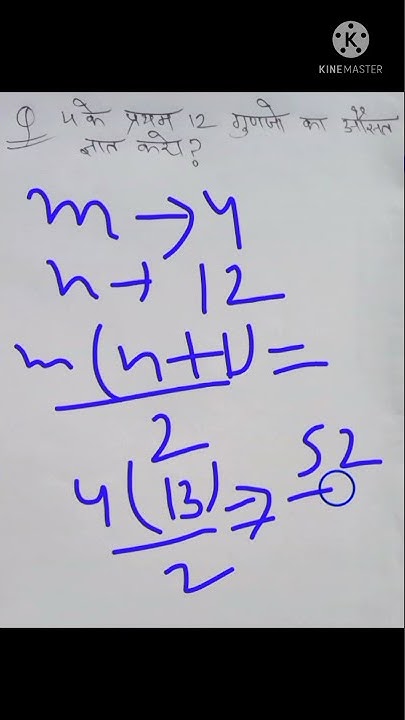 K
KINEMASTER
Q 4 के प्रथम 12 गुणजो का औसत
ज्ञात करो?
m → 4
n → 12
m (n+1) =
2
4 (13) => 52
2